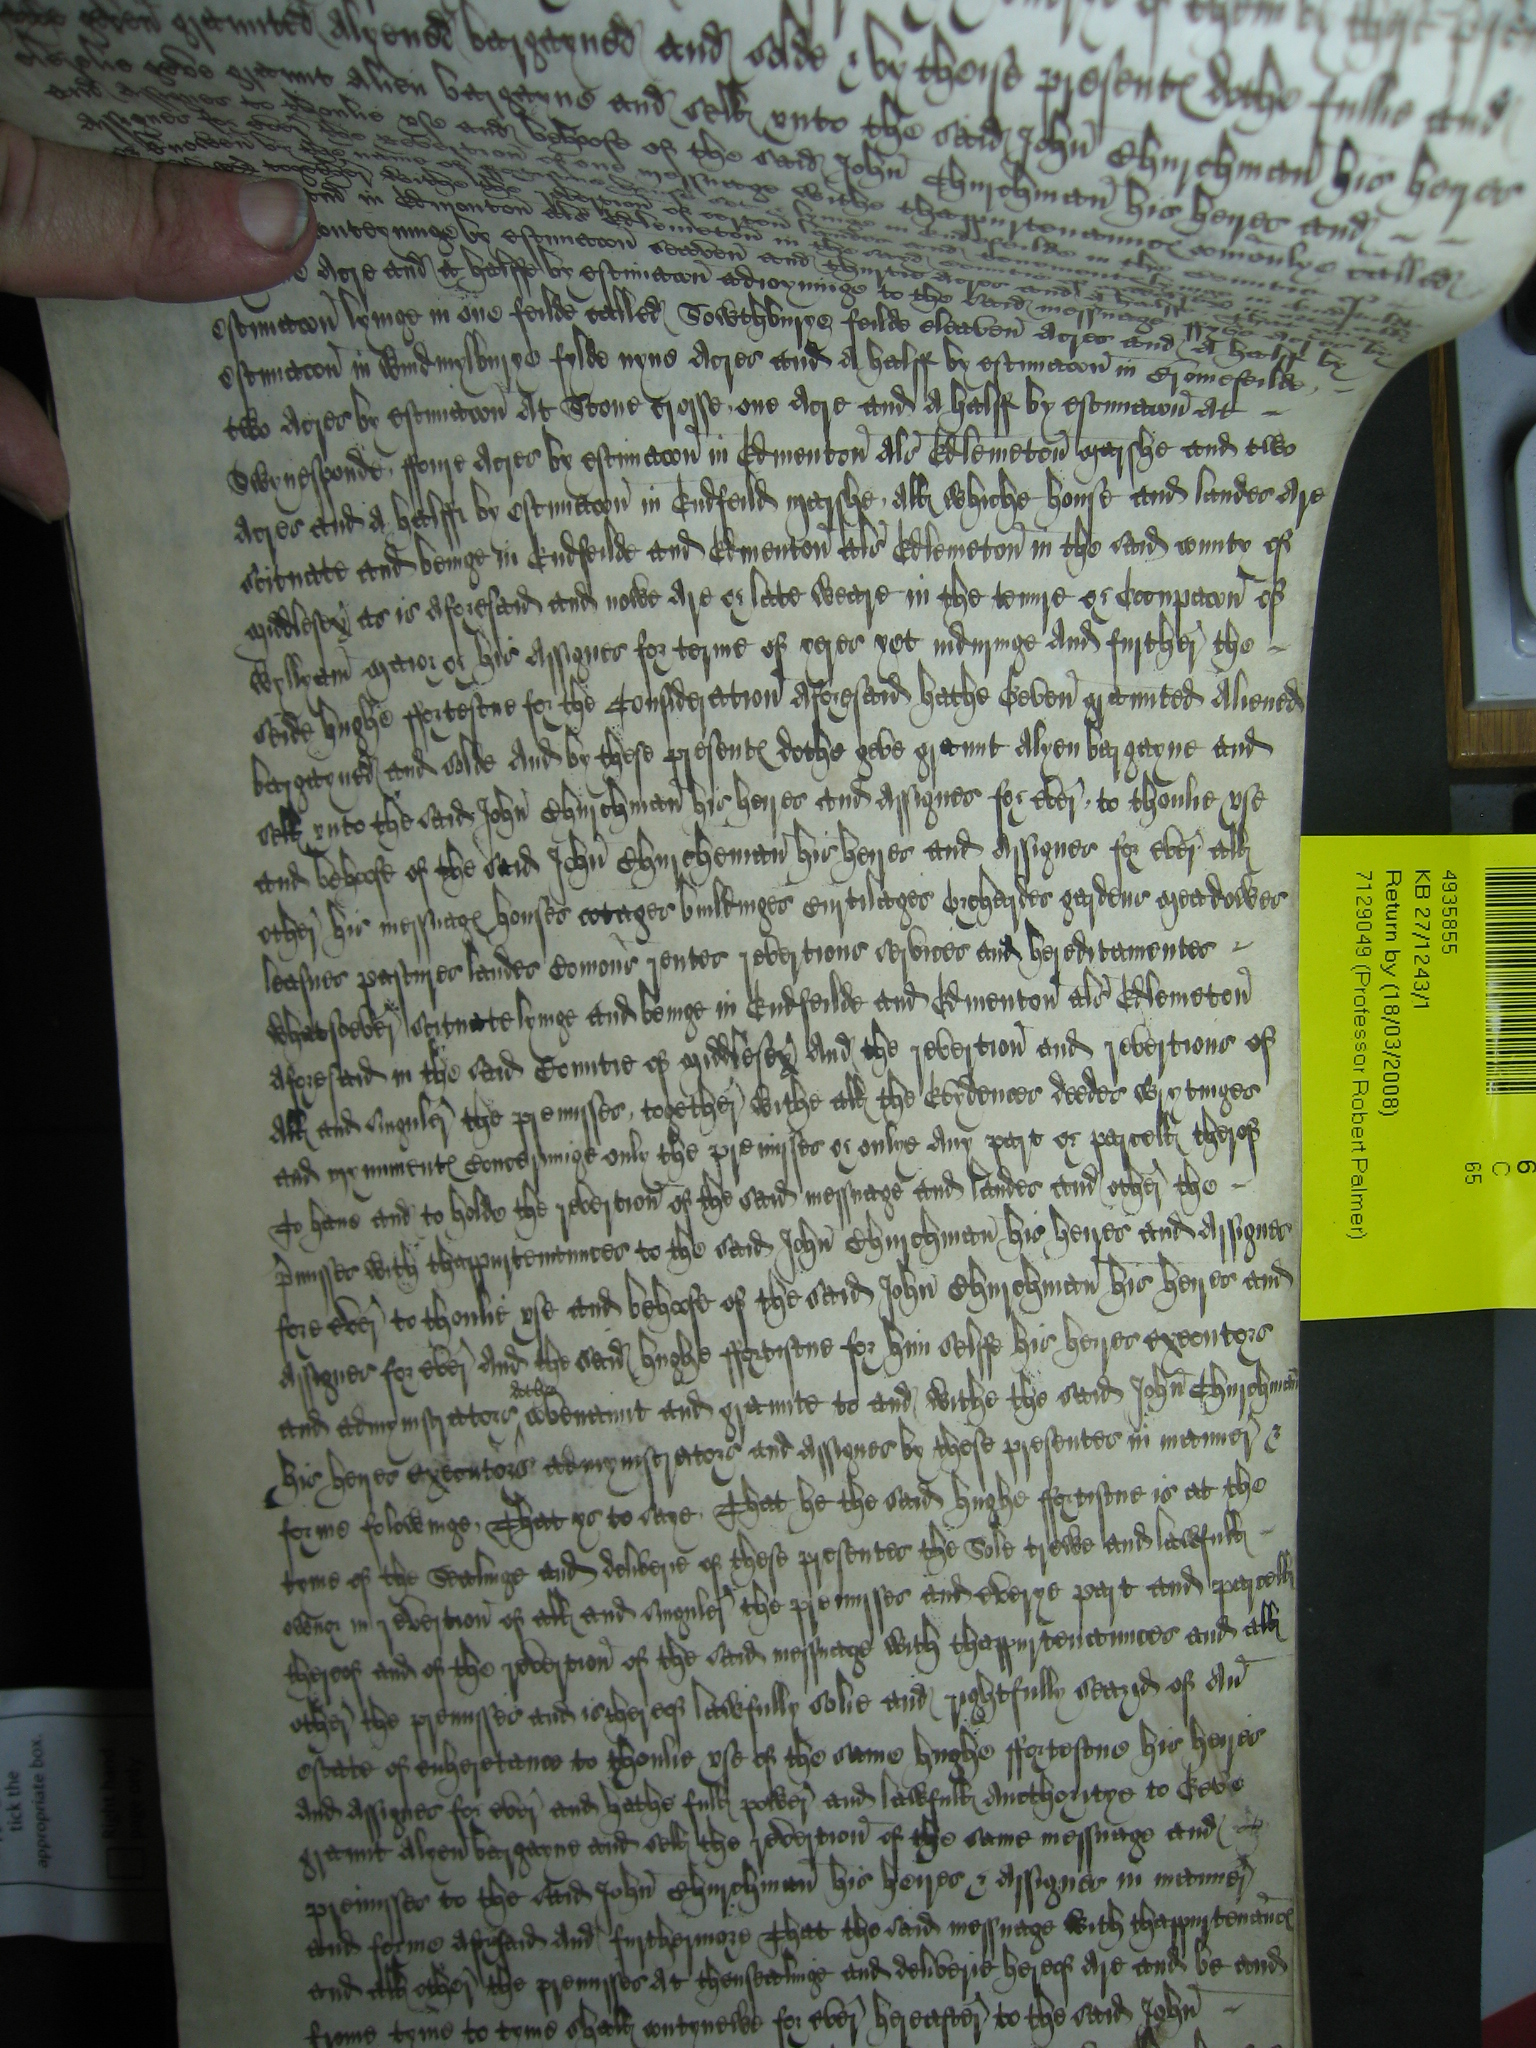 geven graunted Alyened bargayned and solde & by theise presentes dothe fullie and
geve graunt Alien bargayne and sell unto the said John Churchman his heyres
and assignes to thonlie use and behoofe of the said John Churchman his heyres and
Assignes for ever the revertion of one messuage withe thappurtenaunces comonlye called
estimacon lyinge in one feilde called Sowthburye feilde eleaven acres and A halff by
estimacon in Wyndmylburye fylde nyne Acres and A halff by estimacon in Cromefeilde
two Acres by estimacon At Stone crosse, one Acre and A halff by estimacon At
Swynesponde, ffoure Acres by estimacon in Edmenton als Edlemeton marshe and two
Acres and A halff by estimacon in Endfeild marshe, All whiche house and landes Are
scituate and beinge in Endfeilde and Edmenton als Edlemeton in the said countye of
Middlesex as is aforesaid and nowe Are or late weare in the tenure or Occupacon of
Wyllyam maior or his Assignes for terme of yeres yet induringe And further the
seide hughe ffortescue for the Consideration Aforesaid hathe Geven graunted Aliened
bargayned and solde And by these presentes dothe geve graunt Alyen bargayne and
sell unto the said John Churchman his heyres and Assignes for ever, to thonlie use
and behoofe of the said John Churcheman his heyres and Assignes for ever all
other his messuages houses cotages buildinges Curtilages Orchardes gardens meadowes
leasues pastures landes Comons rentes revertions services and hereditamentes
whatsoever scituate lyinge and beinge in Endfeilde and Edmenton als Edlemeton
Aforesaid in the said Countie of Middlesex And the revertion and revertions of
All and singuler the premisses, together withe all the Evydences deedes wrytinges
and mynumentes Concerninge only the premisses or onlye Any part or parcell therof
To have and to holde the revertion of the said messuage and landes and other the
pmisses with thappurtenaunces to the said John Churchman his heyres and Assignes
fore ever to thonlie use and behoofe of the said John Churchman his heyres and
Assignes for ever And the said hughe ffortescue for him selffe his heyres executors
and admynistrators dothe covenaunt and graunte to and withe the said John Churchman
his heyres executors admynistrators and Assignes by these presentes in manner &
forme folowinge, That ys to saye, That he the said hughe ffortescue is at the
tyme of the Sealinge and deliverie of these presentes the Sole trewe and lawfull
owner in revertion of all and singuler the premisses and everye part and parcell
thereof and of the revertion of the said messuage with thappurtenaunces and all
other the premisses and is thereof lawfully solie and rightfully seazed of An
estate of enheretance to thonlie use of the same hughe ffortescue his heyres
and Assignes for ever and hathe full power and lawfull Aucthoritye to Geve
graunt Alyen bargayne and sell the revertion of the same messuage and
premisses to the said John Churchman his heyres & Assignes in manner
and forme aforesaid And furthermore That the said messuage with thappurtenances
and all other the premisses At thensealinge and deliverie hereof Are and be and
frome tyme to tyme shall contynewe for ever hereafter to the said John
4935855
KB 27/1243/1
Return by (18/03/2008)
7129049 (Professor Robert Palmer)
6
C
65
tick the
appropriate box.